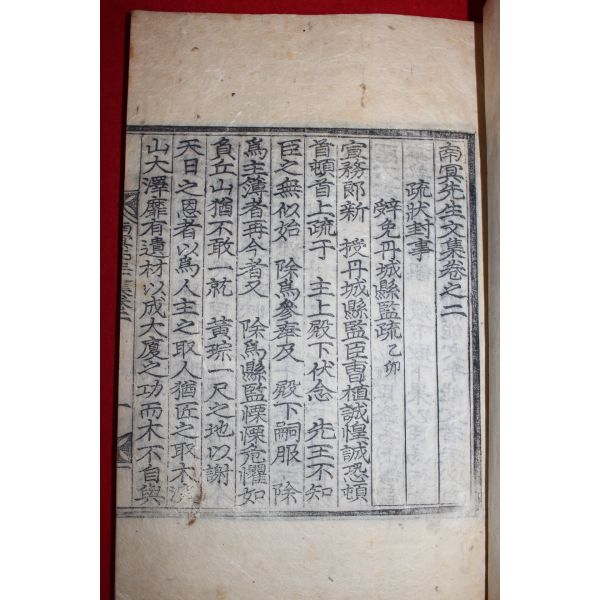 南冥先生文集卷之二
疏狀封事
辭免丹城縣監疏乙卯
宣務郎新 授丹城縣監臣曺植誠惶誠恐頓
首頓首上疏于 主上殿下伏念 先王不知
臣之無似始 除爲參奉及 殿下嗣服 除
爲主簿者再今者又 除爲縣監慄慄危懼如
負丘山猶不敢一就 黃琮一尺之地以謝
天日之恩者以爲人主之取人猶匠之取木深
山大澤靡有遺材以成大廈之功而木不自與